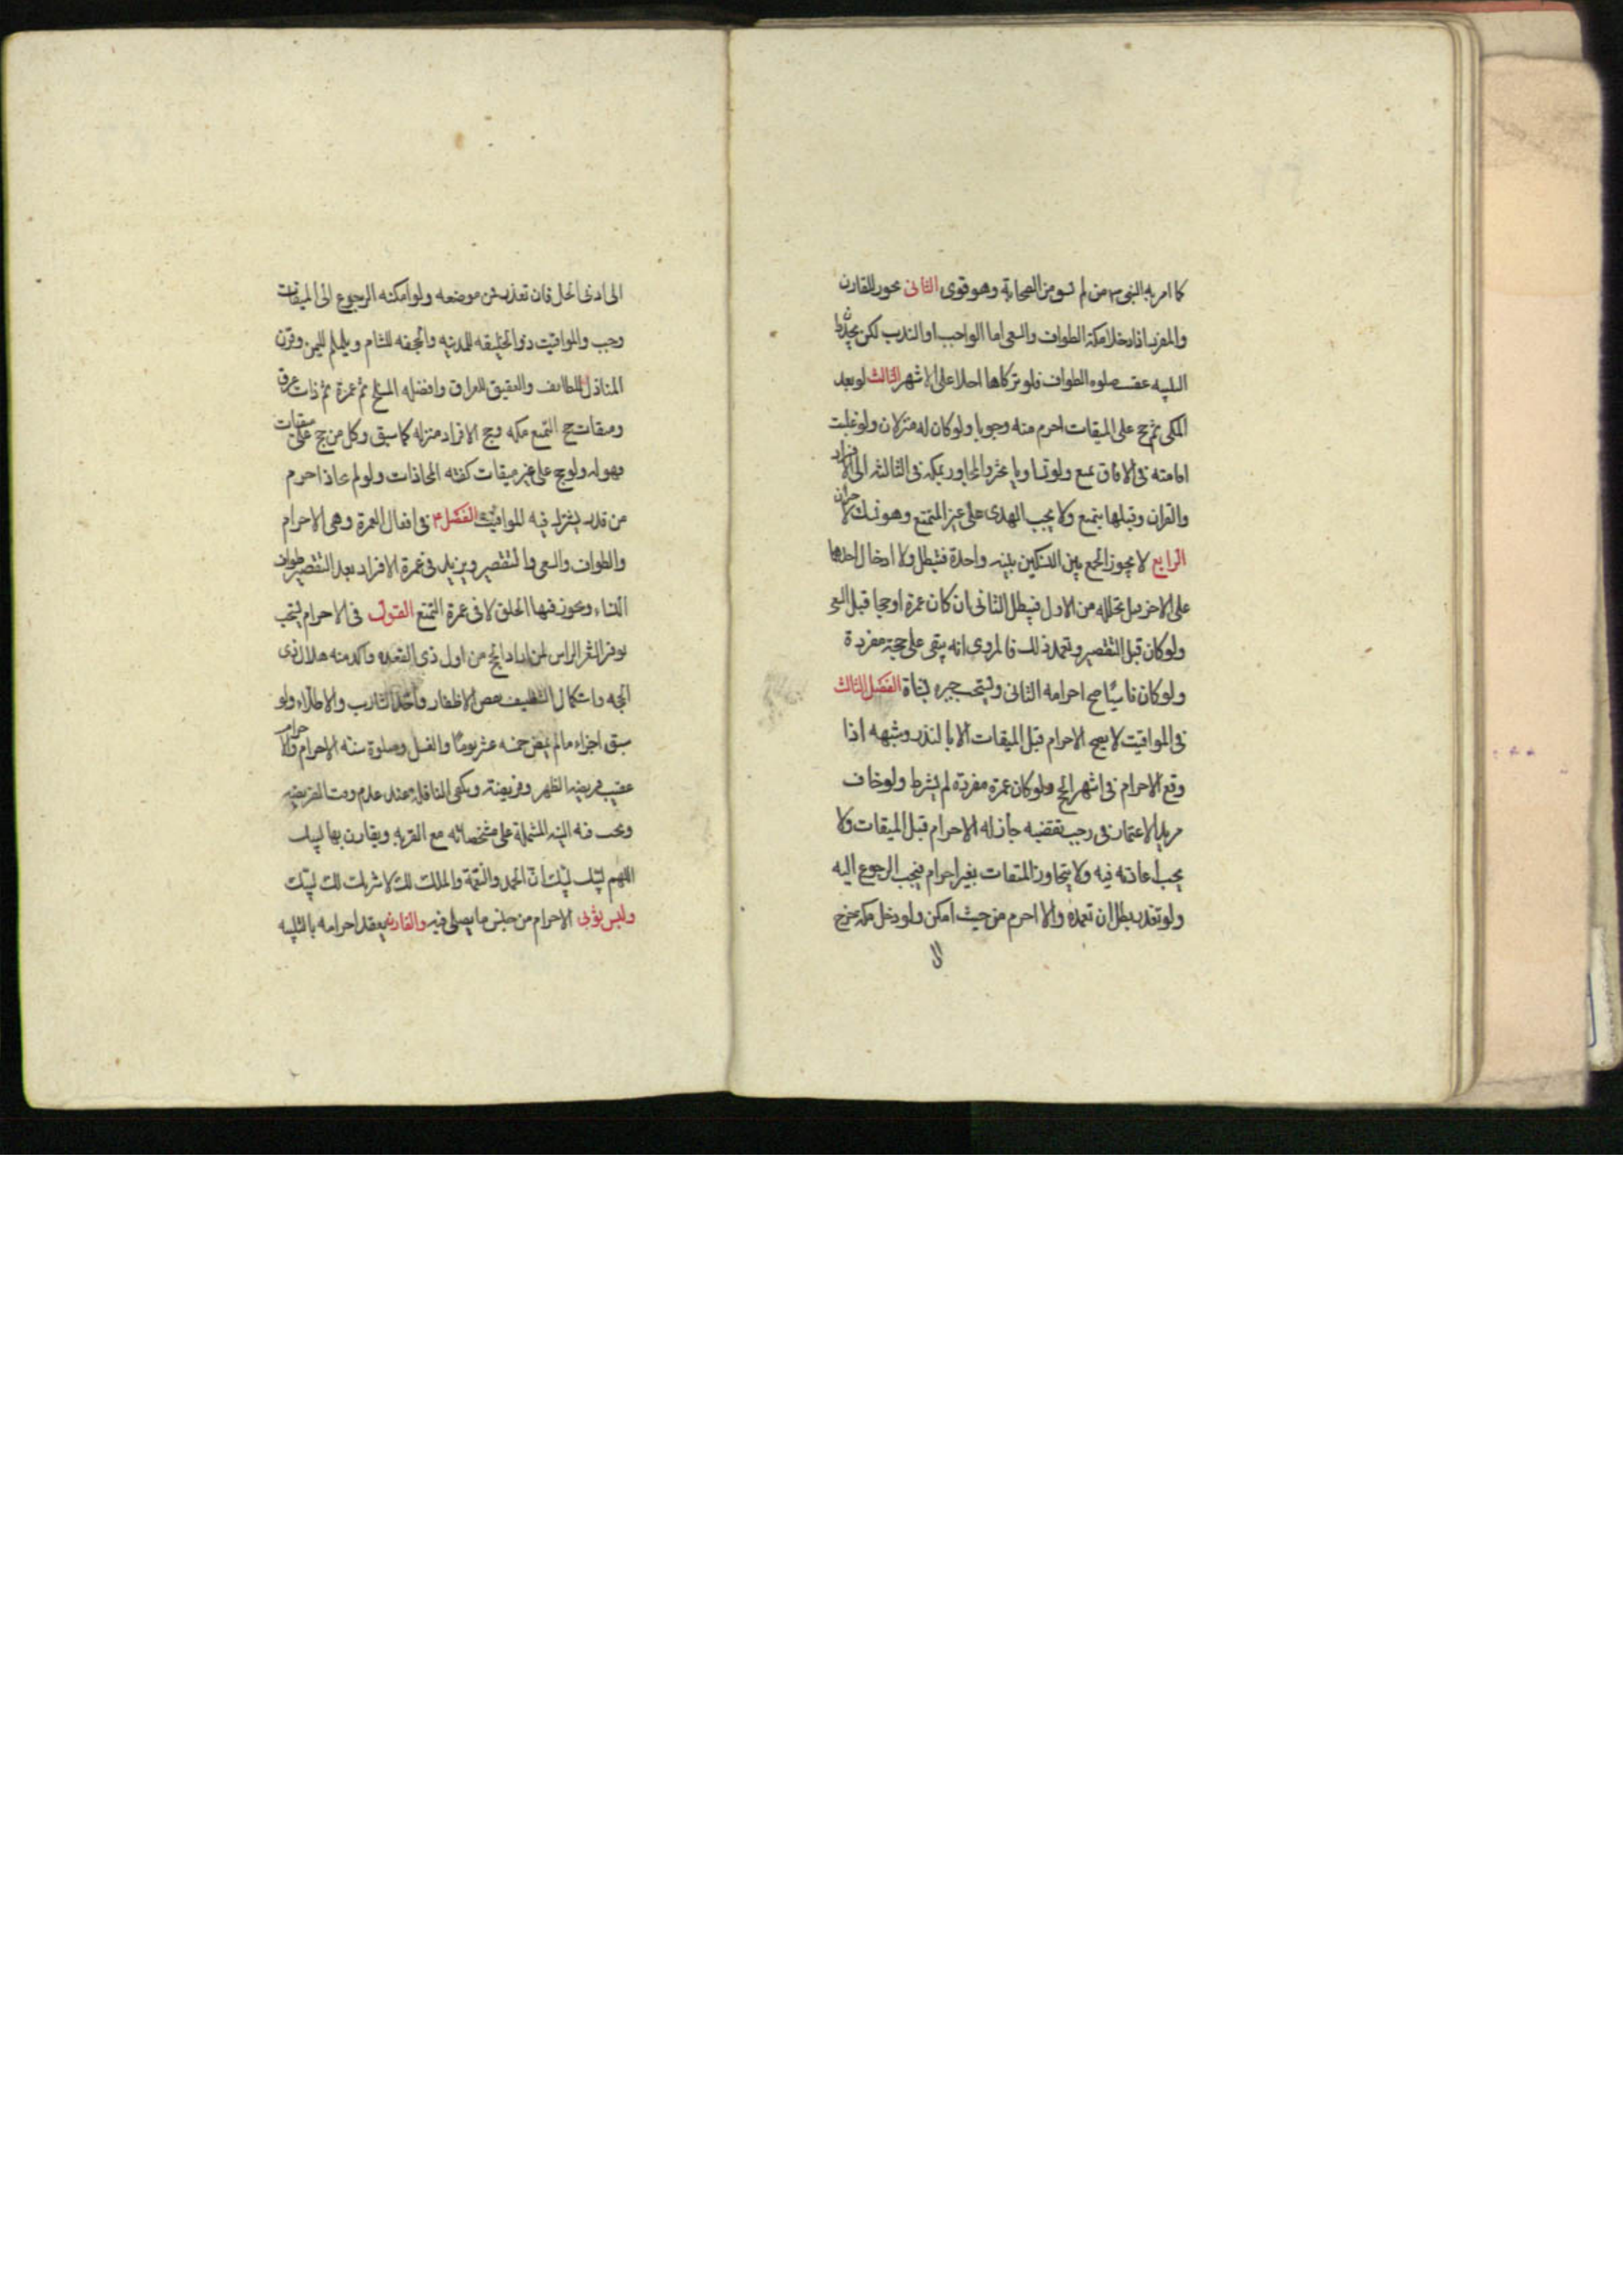 كما امر به النبي ص من لم يسق من الصحابة وهو قوى الثانى يجوز للقارن
والمفرد اذا دخلا مكة الطواف والسعى اما الواجب او الندب لكن يجددا
التلبيه عقيب صلوه الطواف فلو تركاها احلا على الاشهر الثالث لو بعد
المكى ثم حج على الميقات احرم منه وجوبا ولو كان له منزلان ولو غلبت
اقامته فى الافاق تمتع ولو تساويا تخير والمجاور بمكه فى الثالثه الى الافراد
والقران وقبلها يتمتع ولا يجب الهدى على غير المتمتع وهو نسك لا جبران
الرابع لا يجوز الجمع بين النسكين بنيه واحدة فتبطل ولا ادخال احدهما
على الاخر قبل تحلله من الاول فيبطل الثانى ان كان عمرة او حجا قبل السعى
ولو كان قبل التقصير وتعمد ذلك فالمروى انه يبقى على حجة مفردة
ولو كان ناسيًا صح احرامه الثانى ويستحب جبره بشاة الفصل الثالث
فى المواقيت لا يصح الاحرام قبل الميقات الا بالنذر وشبهه اذا
وقع الاحرام فى اشهر الحج ولو كان عمرة مفردة لم يشرط ولو خاف
مريد الاعتمار فى رجب تقضيه جاز له الاحرام قبل الميقات ولا
يجب اعادته فيه ولا يتجاوز الميقات بغير احرام فيجب الرجوع اليه
ولو تعذر بطل ان تعمده والا احرم من حيث امكن ولو دخل مكه خرج
الى
الى ادنى الحل فان تعذر فمن موضعه ولو امكنه الرجوع الى الميقات
وجب والمواقيت ذو الحليفه للمدنيه والجحفه للشام ويلملم لليمن وقرن
المنازل للطائف والعقيق للعراق وافضله المسلخ ثم غمرة ثم ذات عرق
وميقات حج التمتع مكه وحج الافراد منزله كما سبق وكل من حج على ميقات
فهو له ولو حج على غير ميقات كفته المحاذات ولو لم يحاذ احرم
من قدر يشترك فيه المواقيت الفصل ٤ فى افعال العمرة وهى الاحرام
والطواف والسعى والتقصير ويزيد فى عمرة الافراد بعد التقصير طواف
النساء ويجوز فيها الحلق لا فى عمرة التمتع القول فى الاحرام يستحب
توفير شعر الراس لمن اراد الحج من اول ذى القعده واكد منه هلال ذى
الحجه واستكمال التنظيف بقص الاظفار واخذ الشارب والاطلاء ولو
سبق اجزاء ما لم يمض خمسه عشر يومًا والغسل وصلوة سنه الاحرام والاحرام
عقيب فريضه الظهر او فريضة ويكفى النافلة عند عدم وقت الفريضه
ويجب فيه النيه المشتملة على مشخصاته مع القربه ويقارن بها لبيك
اللهم لبيك لبيك ان الحمد والنعمة والملك لك لا شريك لك لبيك
ولبس ثوبى الاحرام من جنس ما يصلى فيه والقارن يعقد احرامه بالتلبيه